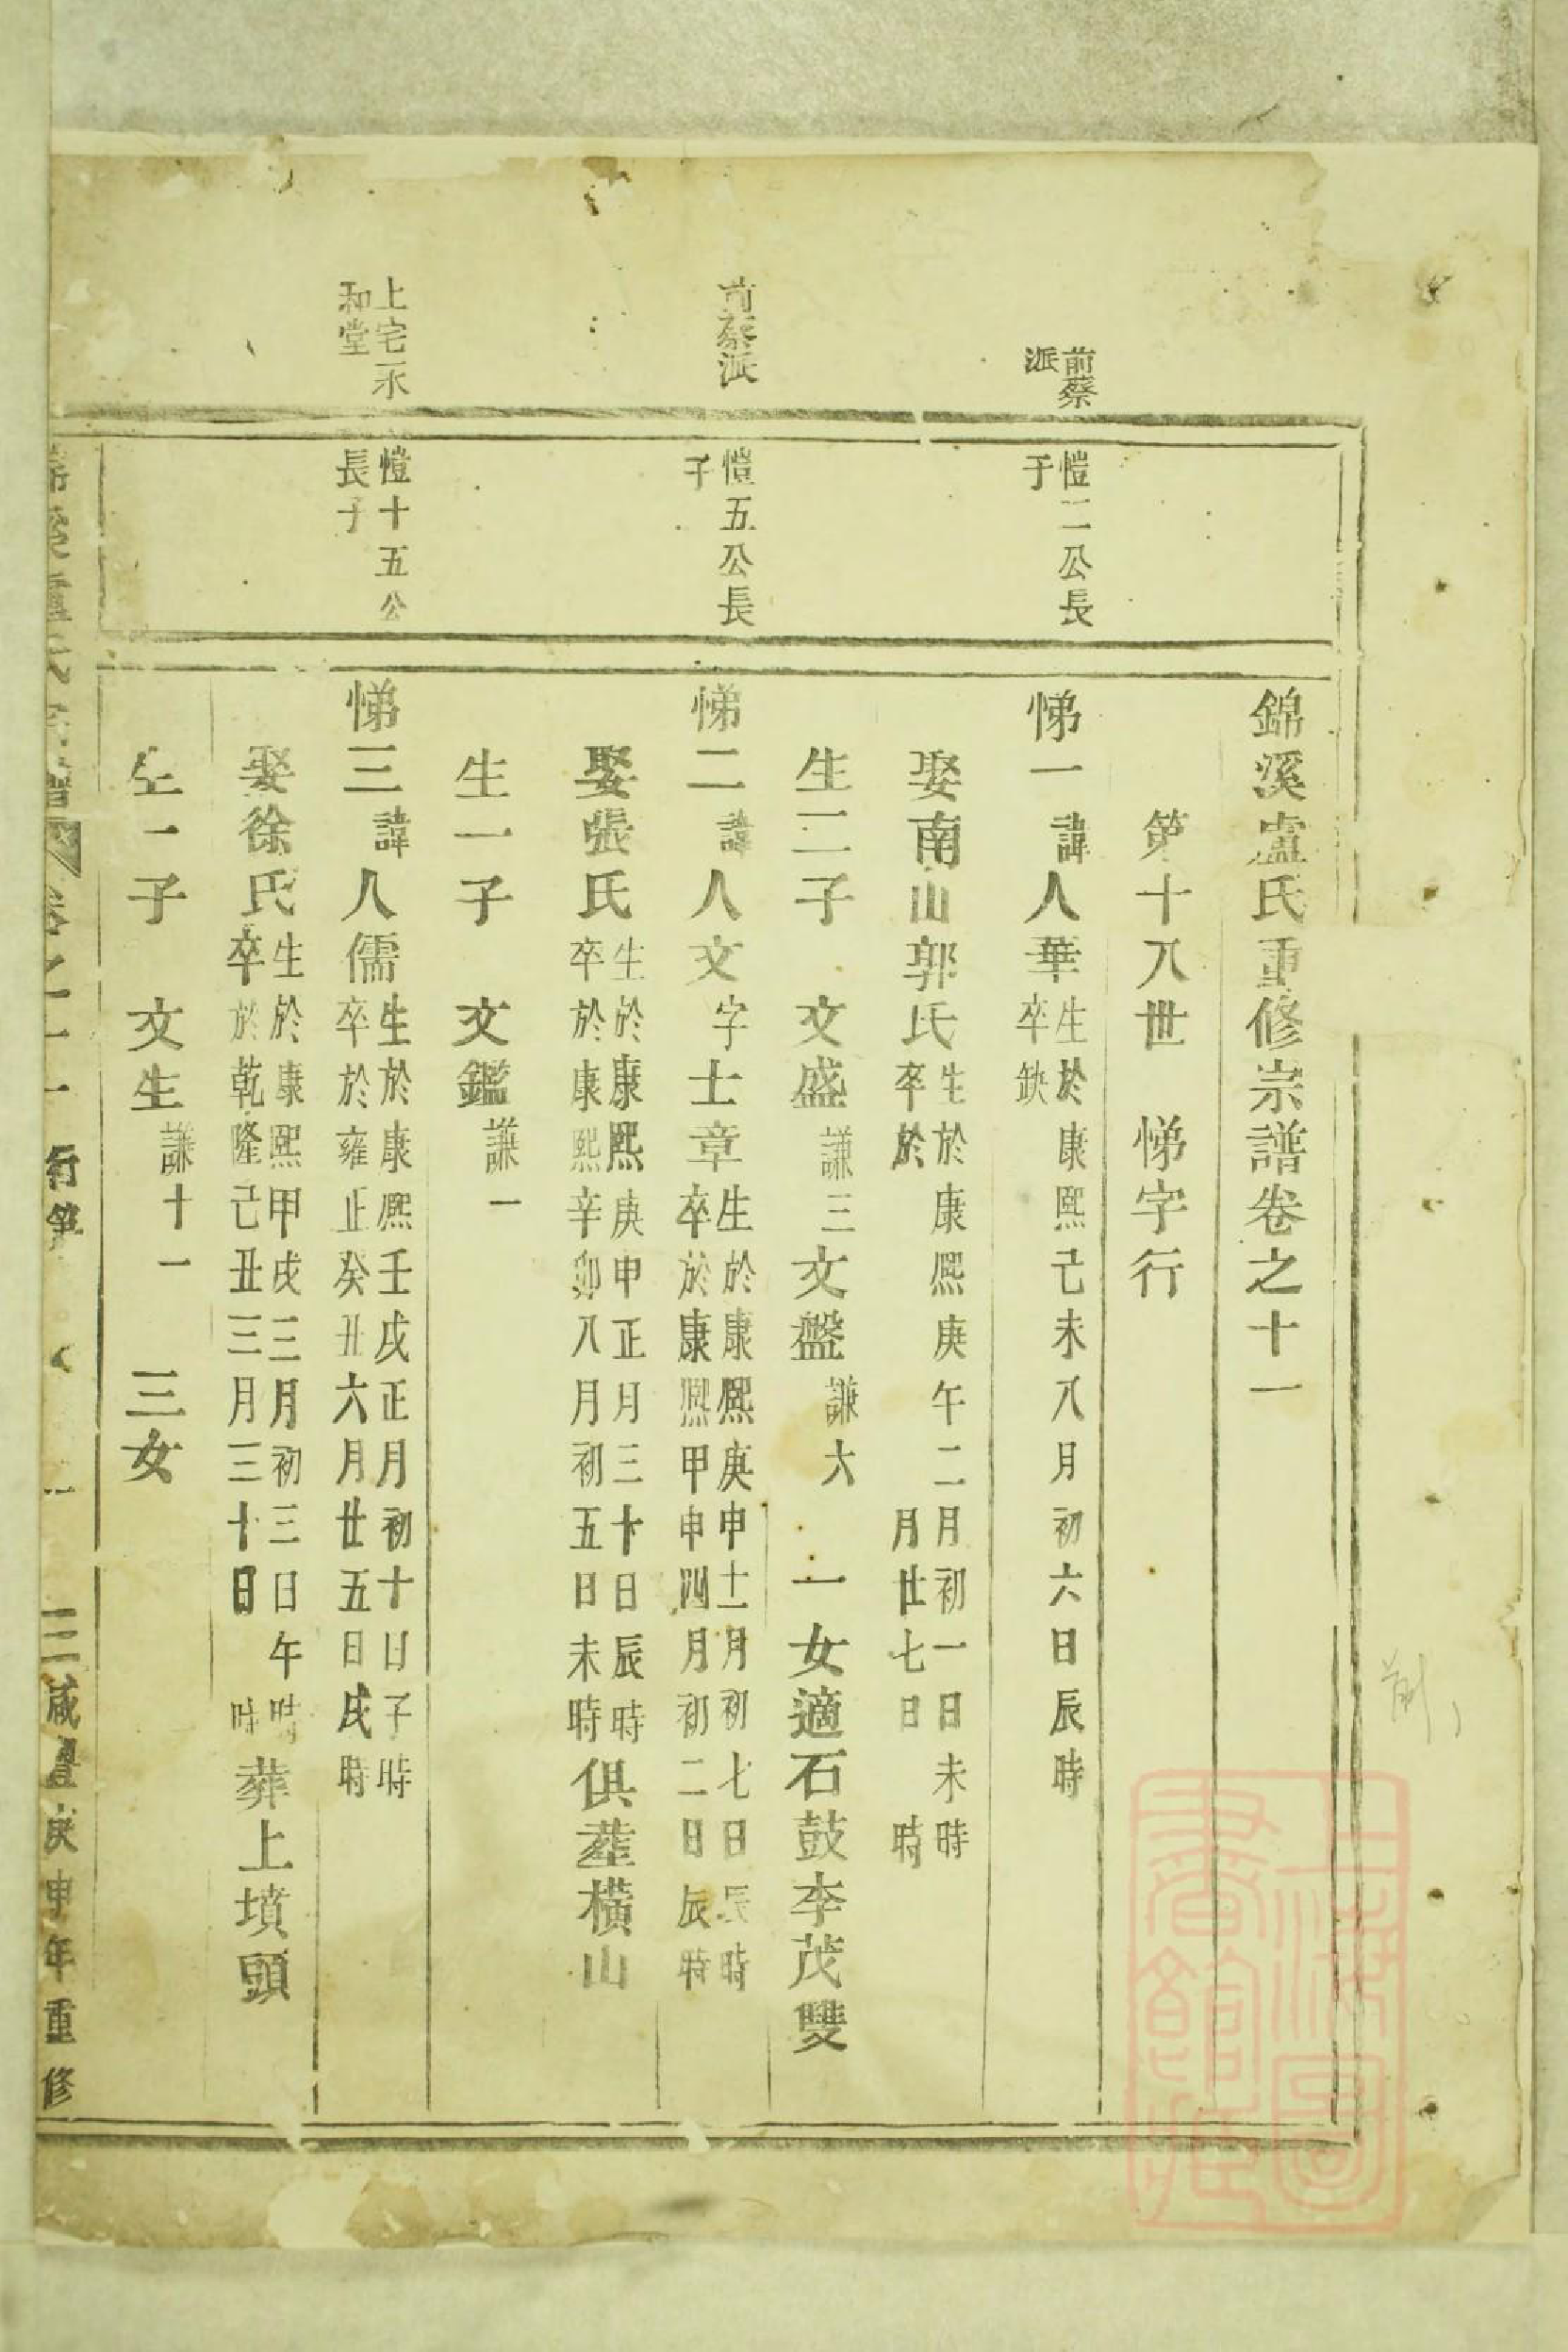 錦溪盧氏重修宗譜卷之十一
第十八世　悌字行
前蔡
派
愷二公長
子
悌一諱人華生於康熙己未八月初六日辰時
卒缺
娶南山郭氏生於康熙庚午二月初一日未時
卒於　月廿七日　時
生二子　文盛謙三文盤謙六　一女適石鼓李茂雙
前蔡派
愷五公長
子
悌二諱人文字士章生於康熙庚申十一月初七日辰時
卒於康熙甲申四月初二日辰時
娶張氏生於康熙庚申正月三十日辰時
卒於康熙辛卯八月初五日未時
俱塟橫山
生一子　文鑑謙一
上宅永
和堂
愷十五公
長子
悌三諱人儒生於康熙壬戌正月初十日子時
卒於雍正癸丑六月廿五日戌時
娶徐氏生於康熙甲戌三月初三日午時
卒於乾隆己丑三月三十日　時
葬上墳頭
生一子　文生謙十一　三女
卷之十一　行第　一　三歲　庚申年重修
上海圖書館藏